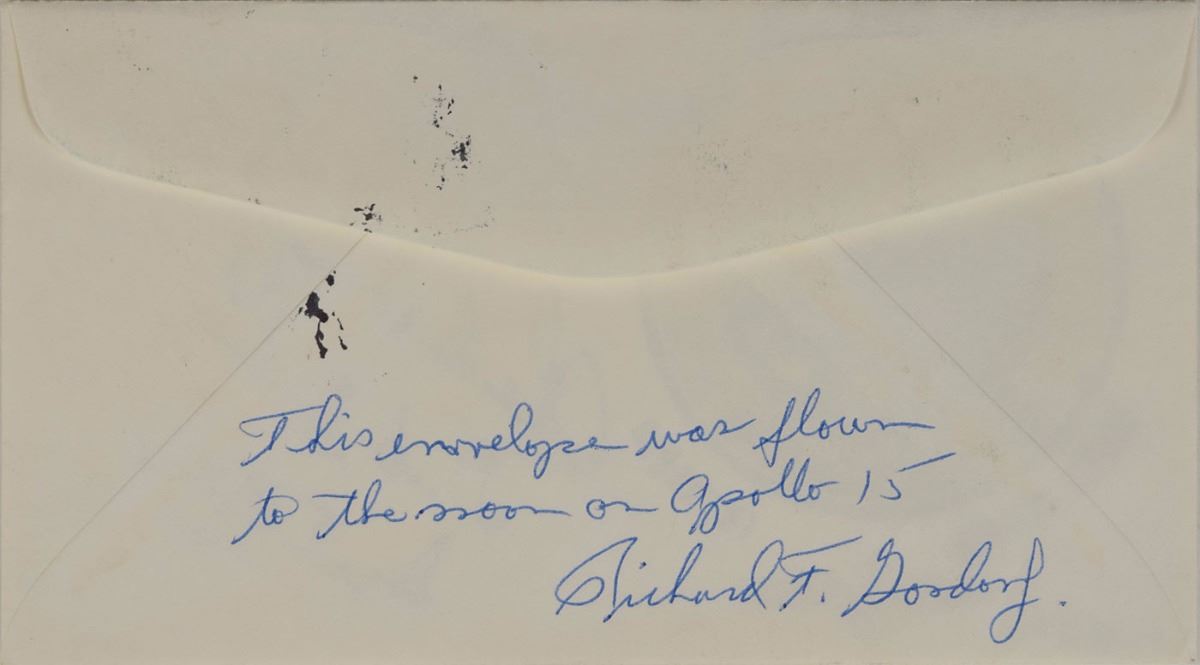 This envelope was flown
to the moon on Apollo 15
Richard F. Gordon Jr.